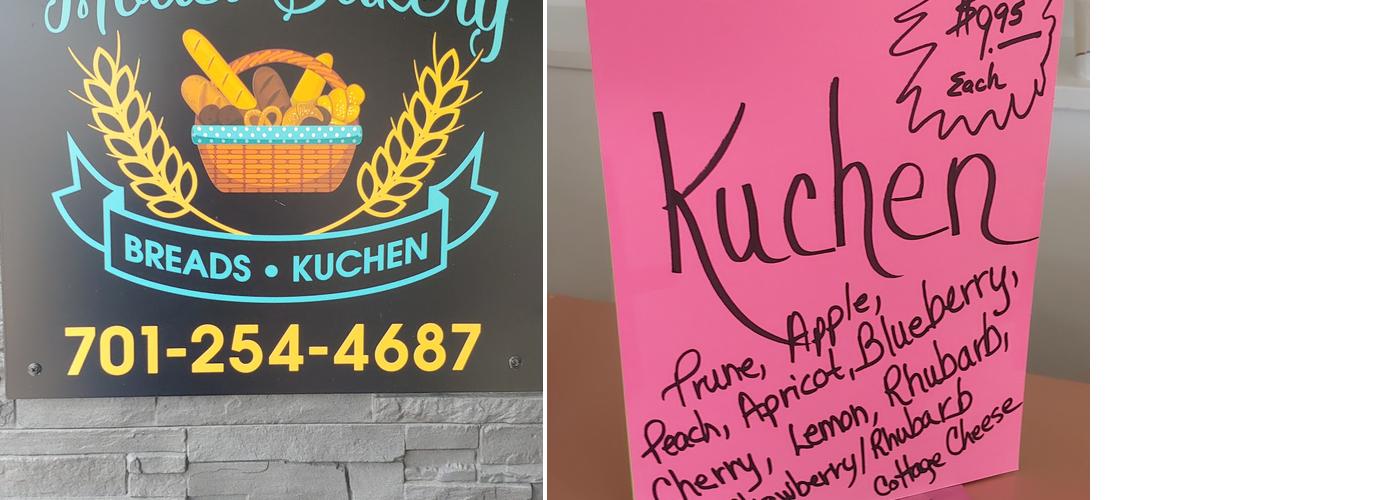 Bakery
BREADS • KUCHEN
701-254-4687
$9.95
Each
Kuchen
Prune, Apple,
Peach, Apricot, Blueberry,
Cherry, Lemon, Rhubarb,
Strawberry/Rhubarb
Cottage Cheese